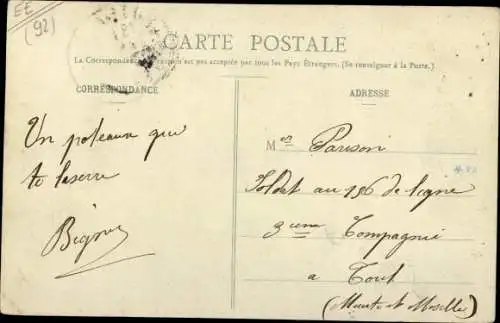 EE
(92)
CARTE POSTALE
La Correspondance est pas acceptée par tous les Pays Étrangers. (Se renseigner à la Poste.)
CORRESPONDANCE
ADRESSE
Un poteaux qui
te laserre
Mer Parison
Soldat au 156 de ligne
3eme Compagnie
a Toul
(Meurte et Moselle)